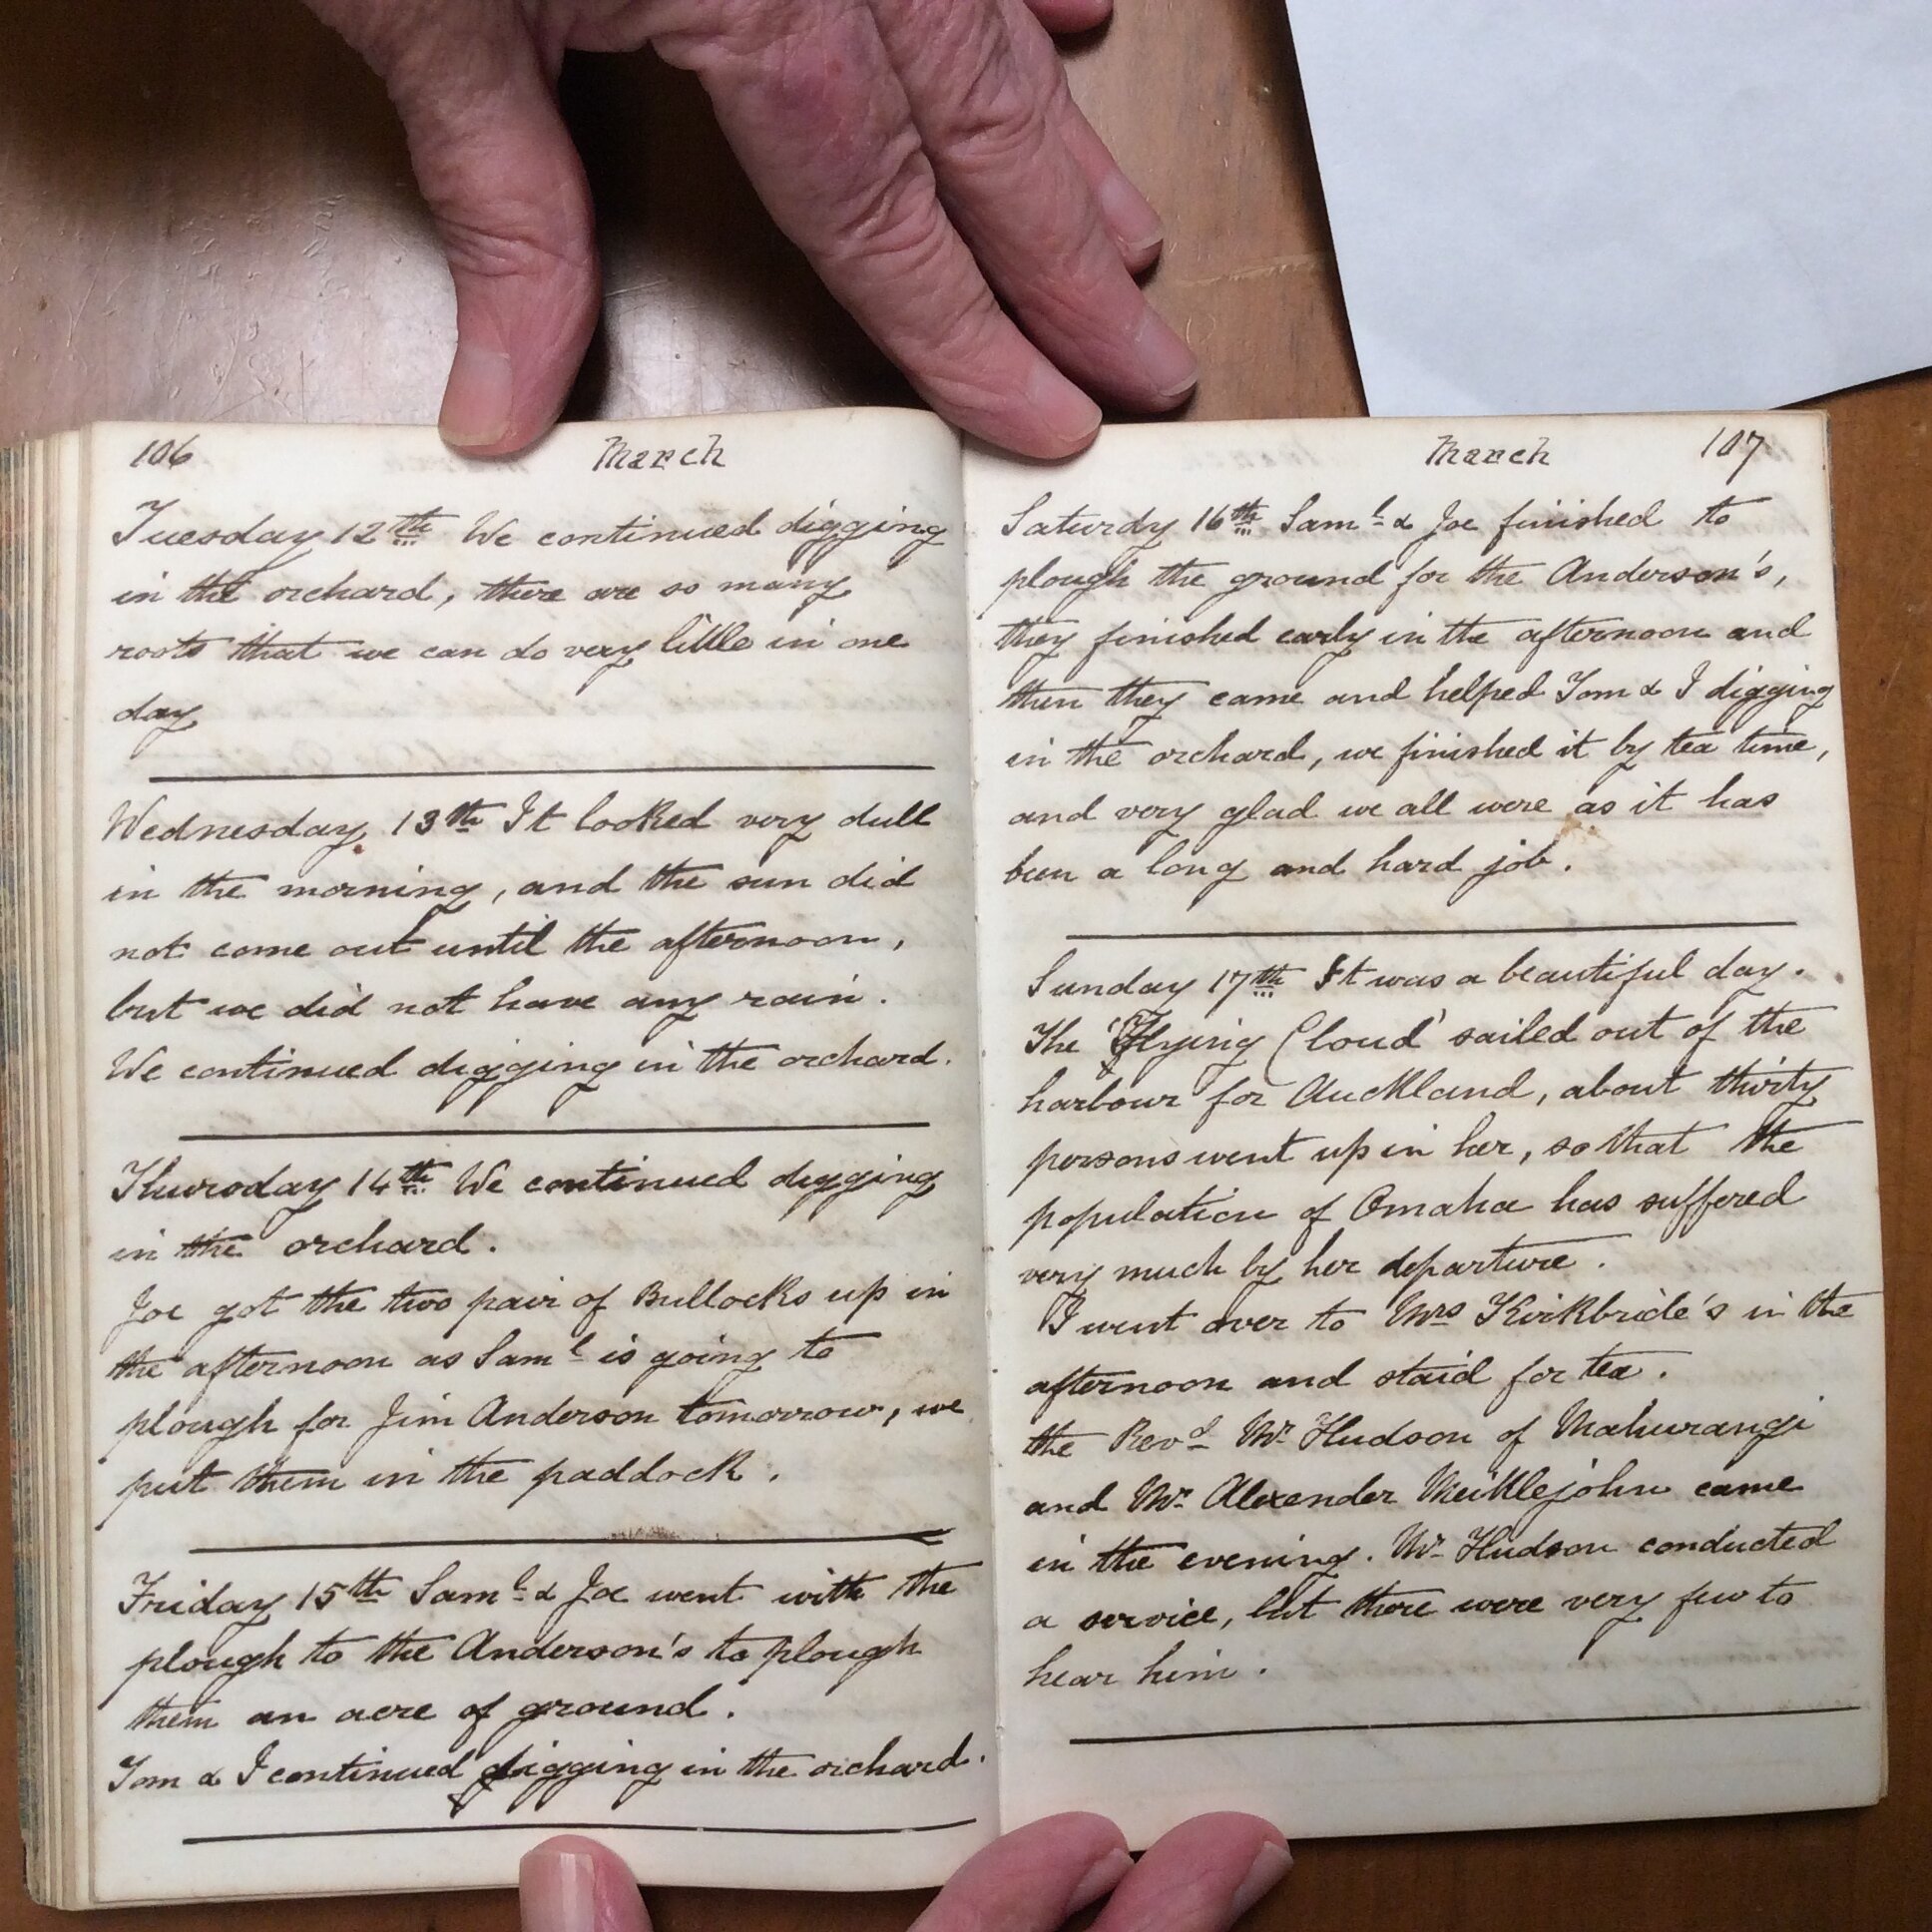 106 March
Tuesday 12th We continued digging
in the orchard, there are so many
roots that we can do very little in one
day
Wednesday 13th It looked very dull
in the morning, and the sun did
not come out until the afternoon,
but we did not have any rain.
We continued digging in the orchard.
Thursday 14th We continued digging
in the orchard.
Joe got the two pair of Bullocks up in
the afternoon as Saml is going to
plough for Jim Anderson tomorrow, we
put them in the paddock.
Friday 15th Saml & Joe went with the
plough to the Anderson's to plough
them an acre of ground.
Tom & I continued digging in the orchard.
March 107
Saturdy 16th Saml & Joe finished to
plough the ground for the Anderson's,
they finished early in the afternoon and
then they came and helped Tom & I digging
in the orchard, we finished it by tea time,
and very glad we all were as it has
been a long and hard job.
Sunday 17th It was a beautiful day.
The 'Flying Cloud' sailed out of the
harbour for Auckland, about thirty
persons went up in her, so that the
population of Omaha has suffered
very much by her departure.
I went over to Mrs Kirkbride's in the
afternoon and staid for tea.
the Revd Mr Hudson of Mahurangi
and Mr Alexender Meiklejohn came
in the evening. Mr Hudson conducted
a service, but there were very few to
hear him.